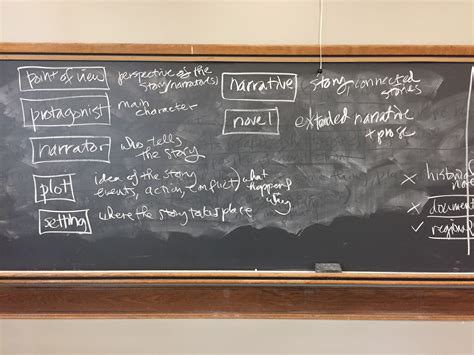 point of view
perspective of the
story/narrator(s)
protagonist
main
character
narrator
who tells
the story
plot
idea of the story
events, action, conflict) what
happens
why
setting
where the story takes place
narrative
story, connected
stories
novel
extended narrative
prose
x
x document
✓ regional